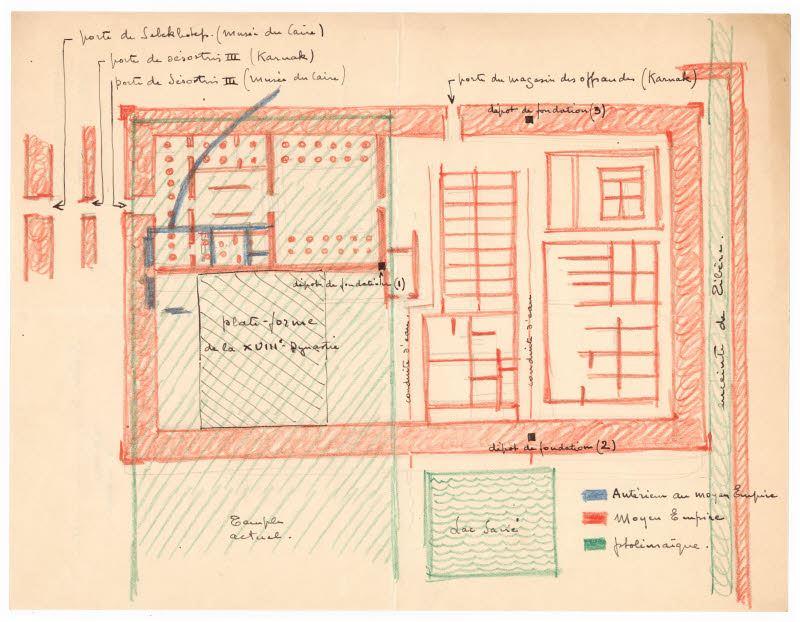 porte de Sebekhotep. (Musée du Caire)
porte de Sésostris III (Karnak)
porte de Sésostris III (Musée du Caire)
porte du magasin des offrandes (Karnak)
dépôt de fondation (3)
dépôt de fondation (1)
plate-forme
de la XVIIIe Dynastie
conduite d'eau.
conduite d'eau
enceinte de Tibère.
dépôt de fondation (2)
Temple
actuel.
Lac Sacré
Antérieur au moyen Empire
Moyen Empire
ptolémaïque.